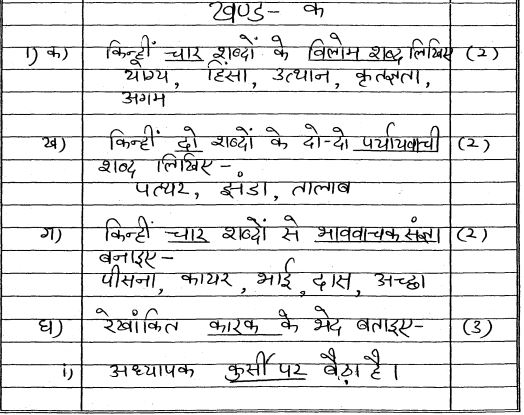 खण्ड - क
1) क) किन्हीं चार शब्दों के विलोम शब्द लिखिए (2)
योग्य, हिंसा, उत्थान, कृतज्ञता,
अगम
ख) किन्हीं दो शब्दों के दो-दो पर्यायवाची (2)
शब्द लिखिए -
पत्थर, झंडा, तालाब
ग) किन्हीं चार शब्दों से भाववाचक संज्ञा (2)
बनाइए -
पीसना, कायर, भाई, दास, अच्छा
घ) रेखांकित कारक के भेद बताइए - (3)
i) अध्यापक कुर्सी पर बैठा है।